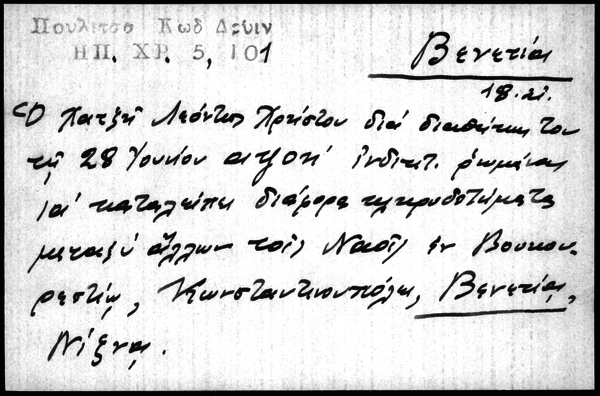 Πουλιτσα Κωδ Δρυιν
ΗΠ. ΧΡ. 5, 101
Βενετία
18. αι.
Ὁ Χατζῆ Λεόντης Χρήστου διά διαθήκης του
τῇ 28 Ἰουνίου αψοη' ἰνδικτ.
ια' καταλείπει διάφορα κληροδοτήματα
μεταξύ ἄλλων τοῖς Ναοῖς ἐν Βουκου-
ρεστίῳ, Κωνσταντινουπόλει, Βενετίᾳ,
Νίζνᾳ.